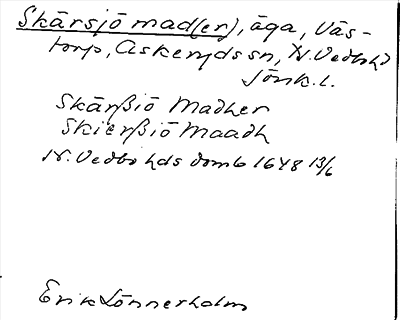 Skärsjö mad(er), äga, Väs-
torp, Askeryds sn, N. Vedbo hd
Jönk. l.
Skärßiö Madher
Skierßiö Maadh
N. Vedbo hds domb 1648 13/6
Erik Lönnerholm